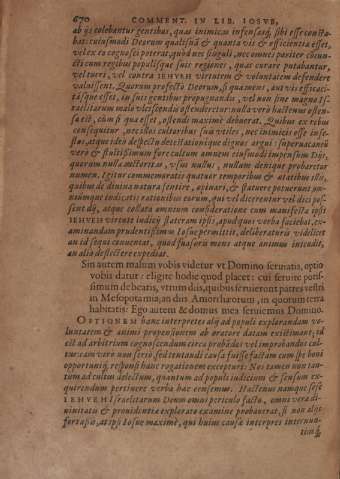 670 COMMENT. IN LIB. IOSVE,
ab ijs colebantur gentibus, quas inimicas infensasq́; sibi esse consta-
bat: cuiusmodi Deorum qualis nā & quanta vis & efficientia esset,
vel ex eo cognosci poterat, quòd nec singuli, nec omnes pariter cicun-
cti cum regibus populisque suis regiones, quas curare putabantur,
vel tueri, vel contra IEHVEH virtutem & voluntatem defendere
valuissent. Quorum profectò Deorum, si qua mens, aut vis efficaci-
tásque esset, in suis gentibus propugnandis, vel non sine magno Is-
raelitarum malo vlciscendis ostenderetur: nulla verò hactenus osten-
sa est, cùm si qua esset, ostendi maximè debuerat. Quibus ex rebus
consequitur, nec illos cultoribus suis vtiles, nec inimicis esse infe-
stos, atque ideo despectu detestationique dignos argui: superuacaneū
verò & stultissimum fore cultum omnem eiusmodi impensum Dijs,
quorum nulla auctoritas, vsus nullus, nullum denique probaretur
numen. Igitur commemoratis quatuor temporibus & ætatibus illis,
quibus de diuina natura sentire, opinari, & statuere potuerunt, om-
niumque indicatis rationibus eorum, qui vel dicerentur vel dici pos-
sent dij, atque collata omnium consideratione cum manifesta ipsi
IEHVEH virtute indice statcram ipsis, apud quos verba faciebat, ex-
aminandam prudentissimus Iosue permittit, deliberaturis videlicet
an id sequi conueniat, quod suasoris mens atque animus intendit,
an aliò deflectere expediat.
Sin autem malum vobis videtur vt Domino seruiatis, optio
vobis datur: eligite hodie quod placet: cui seruire potis-
simum debeatis, vtrùm diis, quibus seruierunt patres vestri
in Mesopotamia, an diis Amorrhæorum, in quorum terra
habitatis: Ego autem & domus mea seruiemus Domino.
OPTIONEM hanc interpretes alij ad populi explorandam vo-
luntatem & animi propensionem ab oratore datam existimant, id
est ad arbitrium cognoscendum circa probādos vel improbandos cul-
tus: eam verò non seriò, sed tentandi causa fuisse factam cum spe boni
opportuniq́; responsi hanc rogationem excepturi: Nos tamen non tan-
tum ad cultus delectum, quantum ad populi iudicium & sensum ex-
quirendum pertinere verba hæc censemus. Hactenus namque sese
IEHVEH Israelitarum Deum omni periculo facto, omni vera di-
uinitatis & prouidentiæ explorato examine probauerat, si non alijs
fortassis, at ipsi Iosue maximè, qui huius causæ interpres internun-
tiusq́;